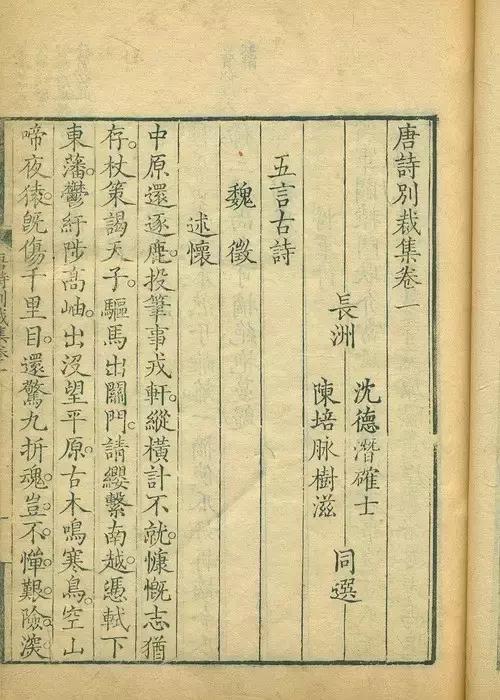 唐詩別裁集卷一
長洲
沈德潛確士
陳培脉樹滋
同選
五言古詩
魏徵
述懷
中原還逐鹿。投筆事戎軒。縱橫計不就。慷慨志猶
存。杖策謁天子。驅馬出關門。請纓繫南越。憑軾下
東藩。鬱紆陟高岫。出沒望平原。古木鳴寒鳥。空山
啼夜猿。旣傷千里目。還驚九折魂。豈不憚艱險。深